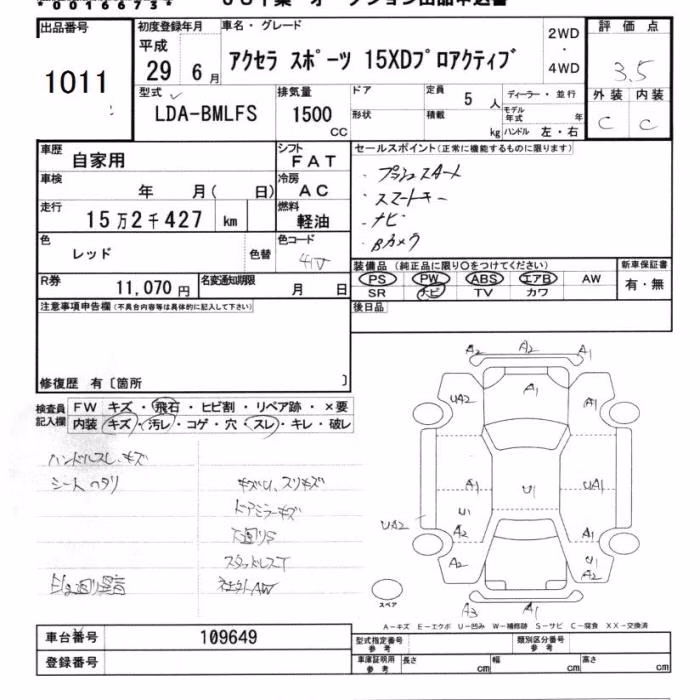 *0016673*
出品番号
1011
初度登録年月
平成
29 6月
車名・グレード
アクセラ スポーツ 15XDプロアクティブ
2WD
・
4WD
評価点
3.5
外装 内装
C C
型式
LDA-BMLFS
排気量
1500
CC
ドア
形状
定員
5 人
積載
kg
ディーラー・並行
モデル年式 年
ハンドル 左・右
車歴
自家用
シフト
FAT
車検
年 月( 日)
冷房
AC
走行
15万2千427 km
燃料
軽油
色
レッド
色替
色コード
41V
R券
11,070円
名変通知期限
月 日
セールスポイント(正常に機能するものに限ります)
・プッシュスタート
・スマートキー
・ナビ
・Bカメラ
装備品(純正品に限り○をつけてください)
PS PW ABS エアB AW
SR ナビ TV カワ
新車保証書
有・無
後日品
注意事項申告欄(不具合内容等は具体的に記入して下さい)
修復歴 有〔箇所 〕
検査員記入欄
FW キズ・飛石・ヒビ割・リペア跡・×要
内装 キズ・汚レ・コゲ・穴・スレ・キレ・破レ
ハンドルスレ、キズ
シートヘタリ
キズU、スリキズ
ドアミラーキズ
下廻りS
スタッドレスT
社外AW
A2 A2 A1
UA2 A1 A1
A1 U1 UA1
UA2 U1
A2 A1
A2 U1
A2
A3 A1
スペア
A−キズ E−エクボ U−凹み W−補修跡 S−サビ C−腐食 XX−交換済
車台番号
109649
登録番号
型式指定番号
参考
類別区分番号
参考
車庫証明用
参考
長さ cm
幅 cm
高さ cm